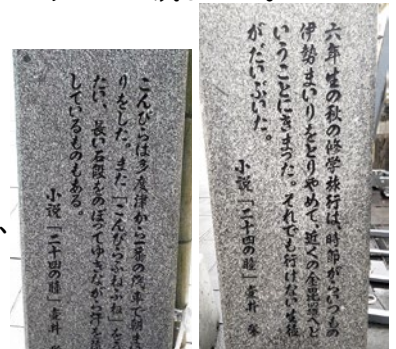 六年生の秋の修学旅行は、時節がらいつもの
伊勢まいりをとりやめて、近くの金毘羅へと
いうことにきまった。それでも行けない生徒
がだいぶいた。
小説「二十四の瞳」壷井
こんぴらは多度津から一番の汽車で朝ま
りをした。また「こんぴらふねふね」を
たい、長い石段をのぼってゆきながら汗を
しているものもある。
小説「二十四の瞳」壷井
、